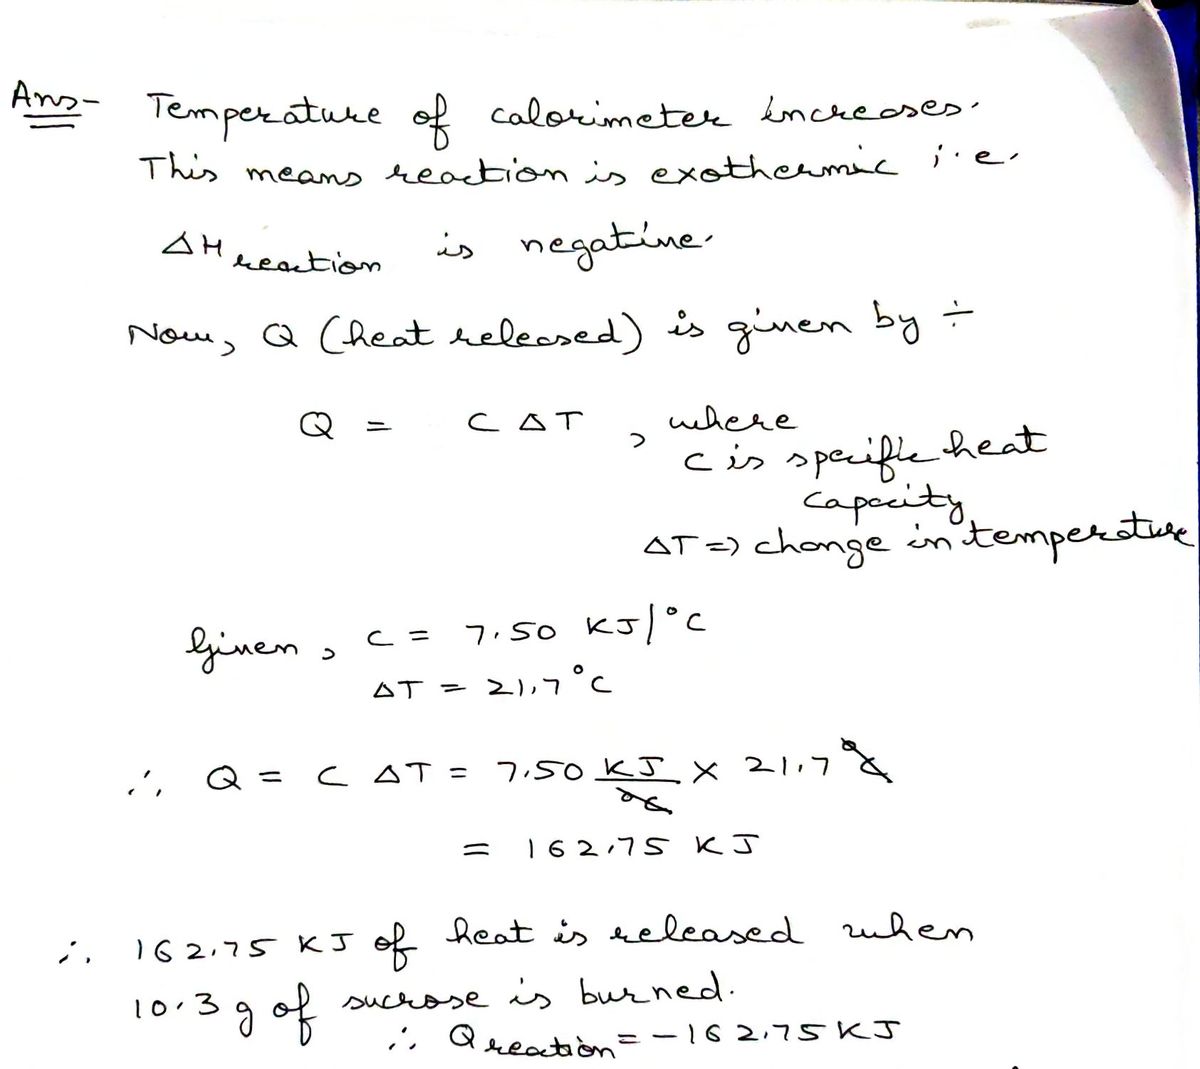 Ans- Temperature of calorimeter increases.
This means reaction is exothermic i.e.
ΔH reaction is negative.
Now, Q (heat released) is given by ÷
Q = C ΔT, where
C is specific heat
capacity
ΔT => change in temperature
Given, C = 7.50 KJ/°C
ΔT = 21.7°C
∴ Q = C ΔT = 7.50 KJ/°C × 21.7 °C
= 162.75 KJ
∴ 162.75 KJ of heat is released when
10.3 g of sucrose is burned.
∴ Q reaction = -162.75 KJ